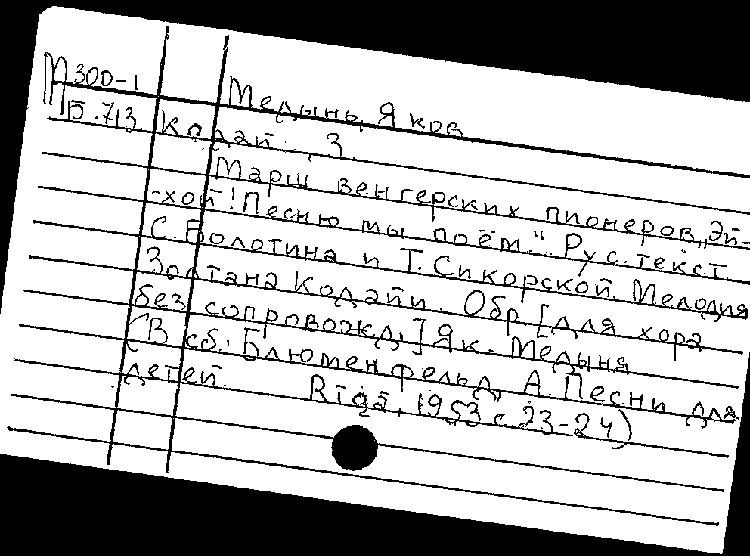 М300-1
Медынь, Яков
Б.713
Кодай, З.
Марш венгерских пионеров „Эй-
хой! Песню мы поём". Рус. текст
С. Болотина и Т. Сикорской. Мелодия
Золтана Кодайи. Обр. [для хора
без сопровожд.] Як. Медыня
(В сб.: Блюменфельд, А. Песни для
детей. Rīgā, 1953 с. 23-24)